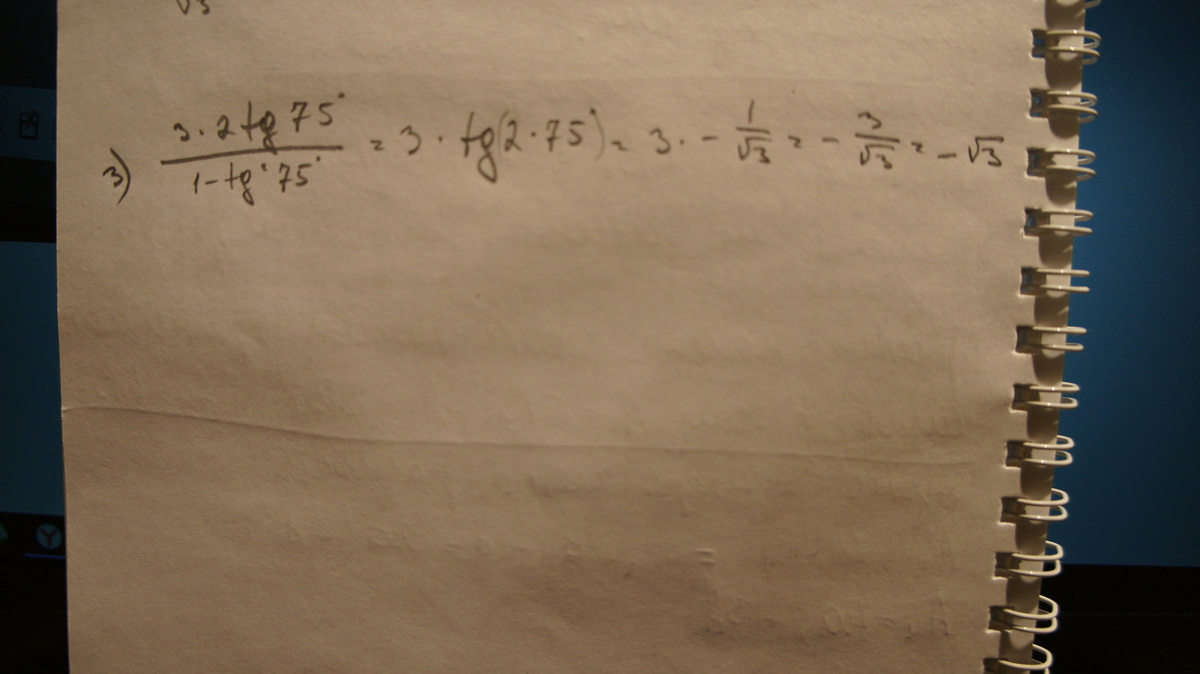 √3
3) (3·2tg75°)/(1-tg²75°) = 3·tg(2·75°) = 3·-1/√3 = -3/√3 = -√3